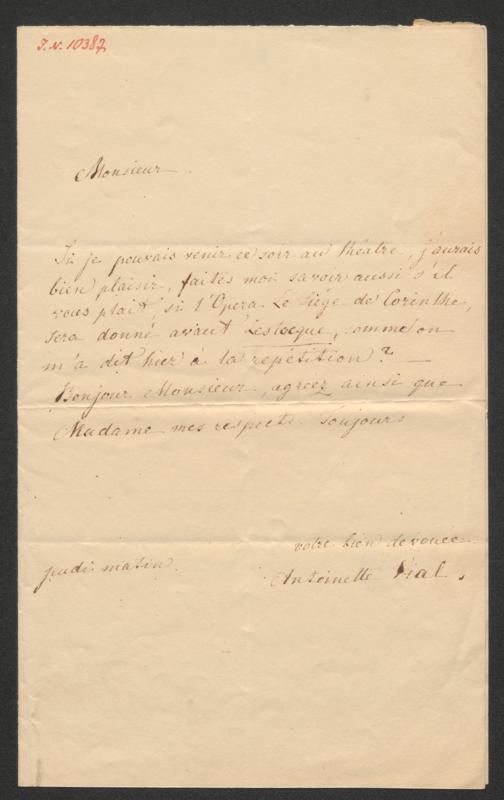 J.N. 10387
Monsieur
Si je pouvais venir ce soir au théatre, j'aurais
bien plaisir, faites moi savoir aussi s'il
vous plait, si l'Opera Le Siége de Corinthe,
sera donné avant Lestocque, comme on
m'a dit hier à la repétition? —
Bonjour Monsieur, agréez ainsi que
Madame mes respects. Toujours
votre bien devouée
jeudi matin.
Antoinette Vial.